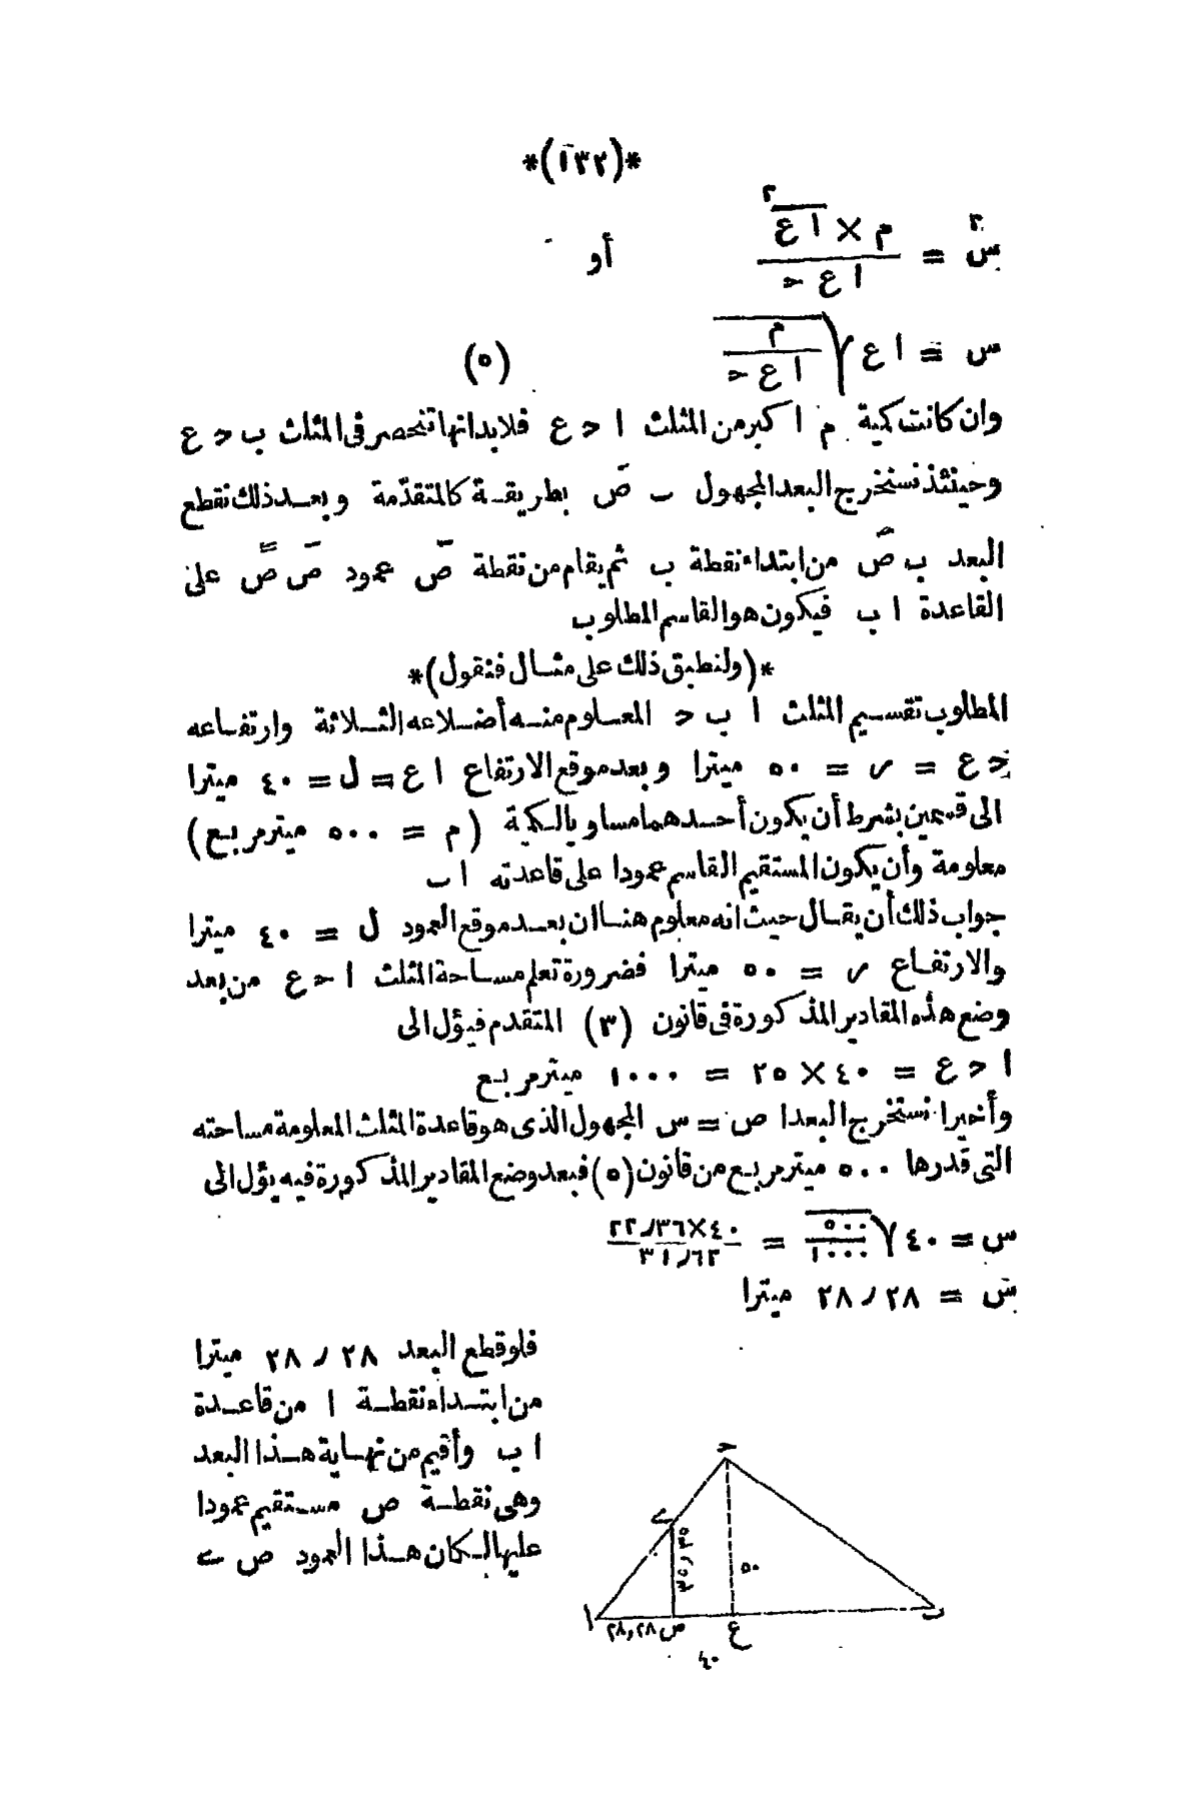 *(١٣٢)*
س٢ = م × ا ع٢ / ا ع ح أو
س = ا ع √ م / ا ع ح (٥)
وان كانت كمية م أكبر من المثلث ا ح ع فلابد انها تنحصر فى المثلث ب ح ع
وحينئذ نستخرج البعد المجهول ب صَ بطريقة كالمتقدّمة وبعد ذلك نقطع
البعد ب صَ من ابتداء نقطة ب ثم يقام من نقطة صَ عمود صَ صً على
القاعدة ا ب فيكون هو القاسم المطلوب
*(ولنطبق ذلك على مثال فنقول)*
المطلوب تقسيم المثلث ا ب ح المعلوم منه أضلاعه الثلاثة وارتفاعه
ح ع = ر = ٥٠ ميترا وبعد موقع الارتفاع ا ع = ل = ٤٠ ميترا
الى قسمين بشرط أن يكون أحدهما مساويا لكمية (م = ٥٠٠ ميتر مربع)
معلومة وأن يكون المستقيم القاسم عمودا على قاعدته ا ب
جواب ذلك أن يقال حيث انه معلوم هنا ان بعد موقع العمود ل = ٤٠ ميترا
والارتفاع ر = ٥٠ ميترا فضرورة تعلم مساحة المثلث ا ح ع من بعد
وضع هذه المقادير المذكورة فى قانون (٣) المتقدم فيؤل الى
ا ح ع = ٤٠ × ٢٥ = ١٠٠٠ ميتر مربع
وأخيرا نستخرج البعد ا ص = س المجهول الذى هو قاعدة المثلث المعلومة مساحته
التى قدرها ٥٠٠ ميتر مربع من قانون (٥) فبعد وضع المقادير المذكورة فيه يؤل الى
س = ٤٠ √ ٥٠٠ / ١٠٠٠ = ٤٠×٢٢٫٣٦ / ٣١٫٦٢
س = ٢٨٫٢٨ ميترا
فلو قطع البعد ٢٨٫٢٨ ميترا
من ابتداء نقطة ا من قاعدة
ا ب وأقيم من نهاية هذا البعد
وهى نقطة ص مستقيم عمودا
عليها لكان هذا العمود ص ى
ح
ى
٥٠
ا
٢٨٫٢٨
ص
ع
ب
٤٠